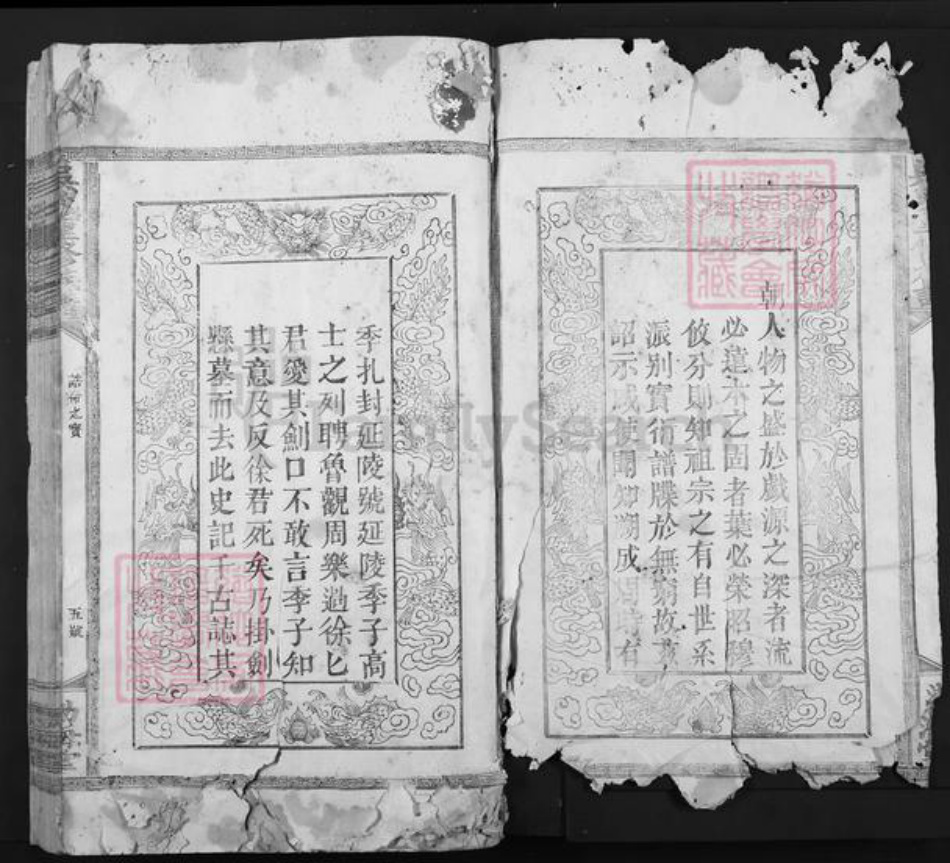 朝人物之盛於戲源之深者流
必遠木之固者葉必榮昭穆
攸分則知祖宗之有自世系
派別實衍譜牒於無窮故茲
詔示咸使聞知
成
有
季扎封延陵號延陵季子高
士之列聘魯觀周樂過徐匕
君愛其劍口不敢言季子知
其意及反徐君死矣乃掛劍
懸墓而去此史記千古誌其
誥命之寶
五號
FamilySearch